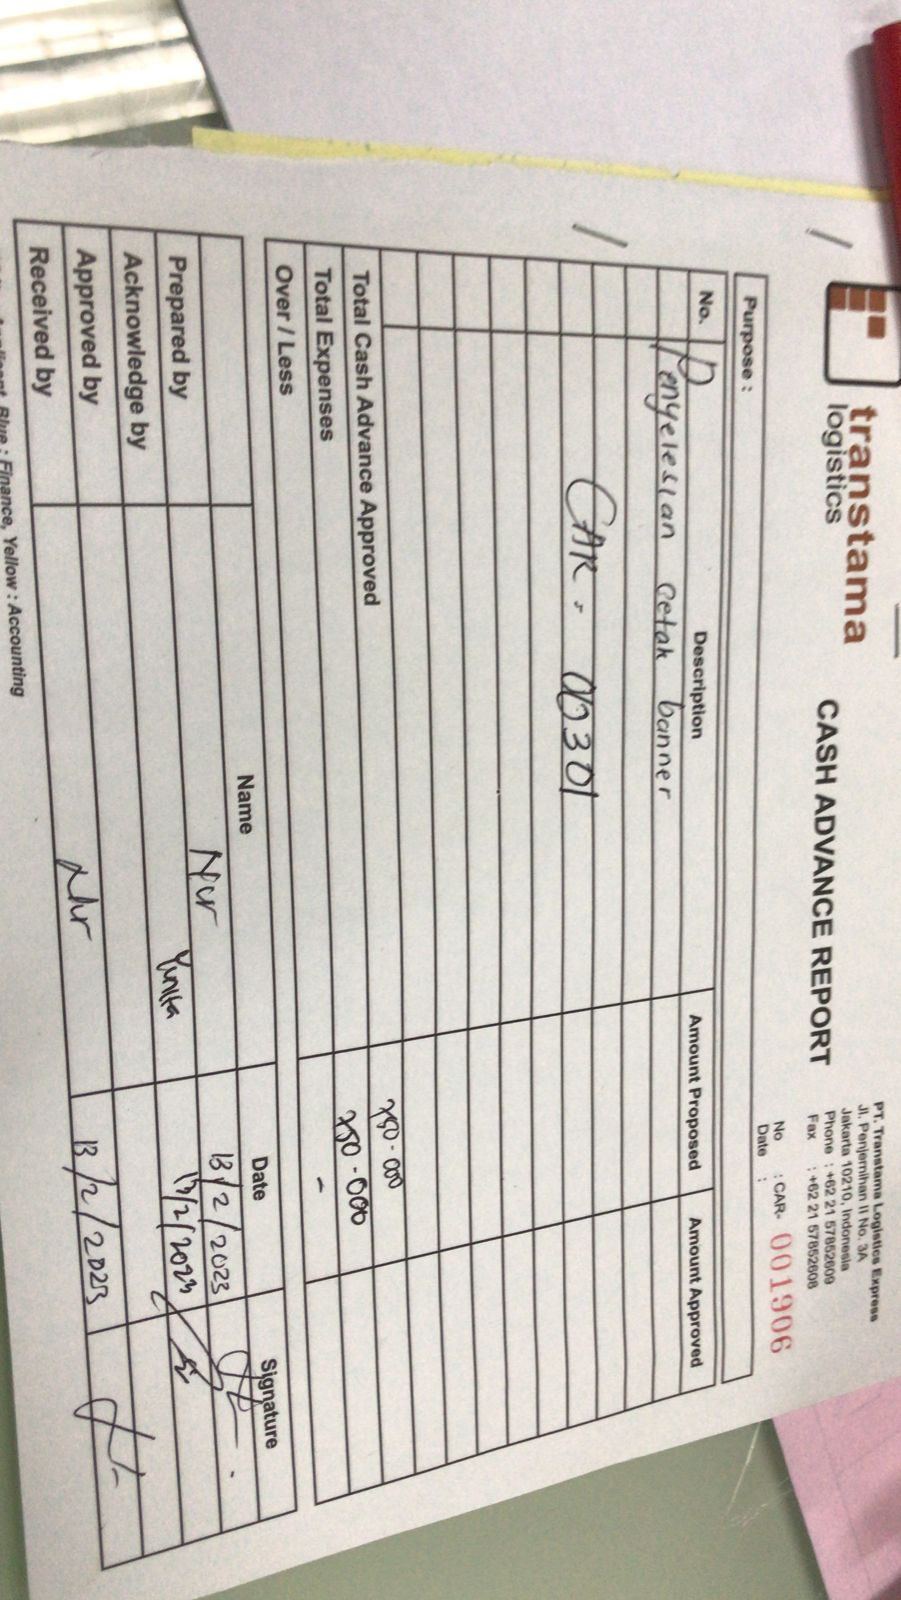 transtama
logistics
CASH ADVANCE REPORT
PT. Transtama Logistics Express
Jl. Penjernihan II No. 3A
Jakarta 10210, Indonesia
Phone : +62 21 57852609
Fax : +62 21 57852608
No : CAR- 001906
Date :
Purpose :
No. Description Amount Proposed Amount Approved
Penyelesian Cetak banner
CAR - 00301
Total Cash Advance Approved 750.000
Total Expenses 750.000
Over / Less -
Name Date Signature
Prepared by Nur 13/2/2023
Acknowledge by Yunita 13/2/2023
Approved by
Received by Nur 13/2/2023
Blue : Finance, Yellow : Accounting